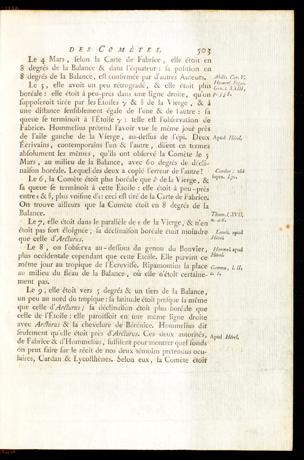 DES COMÈTES. 503
Le 4 Mars, selon la Carte de Fabrice, elle étoit en
8 degrés de la Balance & dans l'équateur : sa position en
8 degrés de la Balance, est confirmée par d'autres Auteurs.
Le 5, elle avoit un peu rétrogradé, & elle étoit plus
boréale : elle étoit à peu-près dans une ligne droite, qu'on
supposeroit tirée par les Étoiles γ & δ de la Vierge, & à
une distance sensiblement égale de l'une & de l'autre : sa queue
se terminoit à l'Étoile : telle est l'observation de
Fabrice. Hommelius prétend l'avoir vue le même jour près
de l'aîle gauche de la Vierge, au-dessus de l'épi. Deux
Écrivains, contemporains l'un & l'autre, disent en termes
absolument les mêmes, qu'ils ont observé la Comète le 5
Mars, au milieu de la Balance, avec 60 degrés de décli-
naison boréale. Lequel des deux a copié l'erreur de l'autre !
Le 6, la Comète étoit plus boréale que de la Vierge, &
sa queue se terminoit à cette Étoile : elle étoit à peu-près
entre & δ, plus voisine d' : ceci est tiré de la Carte de Fabrice.
On trouve ailleurs que la Comète étoit en 8 degrés de la
Balance.
Le 7, elle étoit dans le parallèle de ε de la Vierge, & n'en
étoit pas fort éloignée ; sa déclinaison boréale étoit moindre
que celle d'Arcturus.
Le 8, on l'observa au-dessous du genou du Bouvier,
plus occidentale cependant que cette Étoile. Elle parvint ce
même jour au tropique de l'Écrevisse. Ripamontius la place
au milieu du fléau de la Balance, où elle n'étoit certaine-
ment pas.
Le 9, elle étoit vers 5 degrés & un tiers de la Balance,
un peu au nord du tropique : sa latitude étoit presque la même
que celle d'Arcturus ; sa déclinaison étoit plus boréale que
celle de l'Étoile : elle paroissoit en une même ligne droite
avec Arcturus & la chevelure de Bérénice. Hommelius dit
seulement qu'elle étoit près d'Arcturus. Ces deux autorités,
de Fabrice & d'Hommelius, suffisent pour montrer quel fonds
on peut faire sur le récit de nos deux témoins prétendus ocu-
laires, Cardan & Lycosthènes. Selon eux, la Comète étoit
Apud Hével.
Gemma, l. II,
Apud Hével.